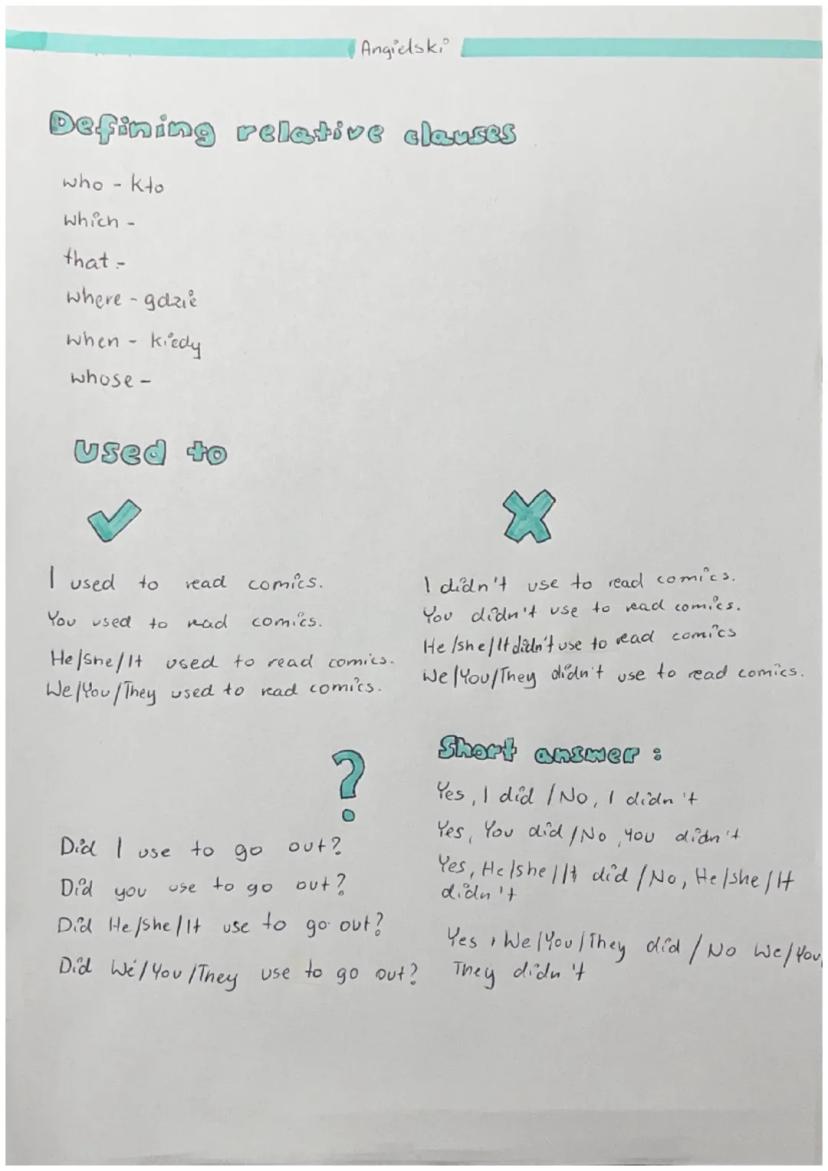 Angielski
Defining relative clauses
who - kto
which -
that -
where - gdzie
when - kiedy
whose -
used to
I used to read comics.
You used to read comics.
He/she/It used to read comics.
We/You/They used to read comics.
I didn't use to read comics.
You didn't use to read comics.
He/she/It didn't use to read comics
We/You/They didn't use to read comics.
?
Did I use to go out?
Did you use to go out?
Did He/she/It use to go out?
Did We/You/They use to go out?
Short answer:
Yes, I did / No, I didn't
Yes, You did / No, you didn't
Yes, He/she/It did / No, He/she/It
didn't
Yes, We/You/They did / No We/You,
They didn't